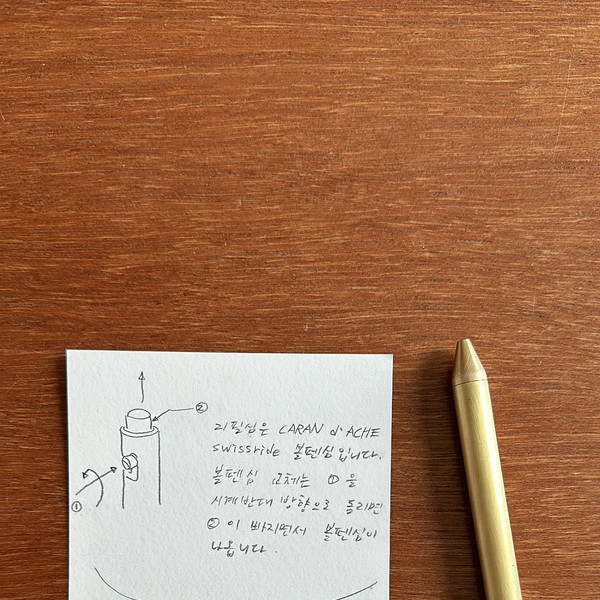 ②
리필심은 CARAN d'ACHE
swissride 볼펜심입니다.
볼펜심 교체는 ①을
시계반대 방향으로 돌리면
② 이 빠지면서 볼펜심이
나옵니다.
①